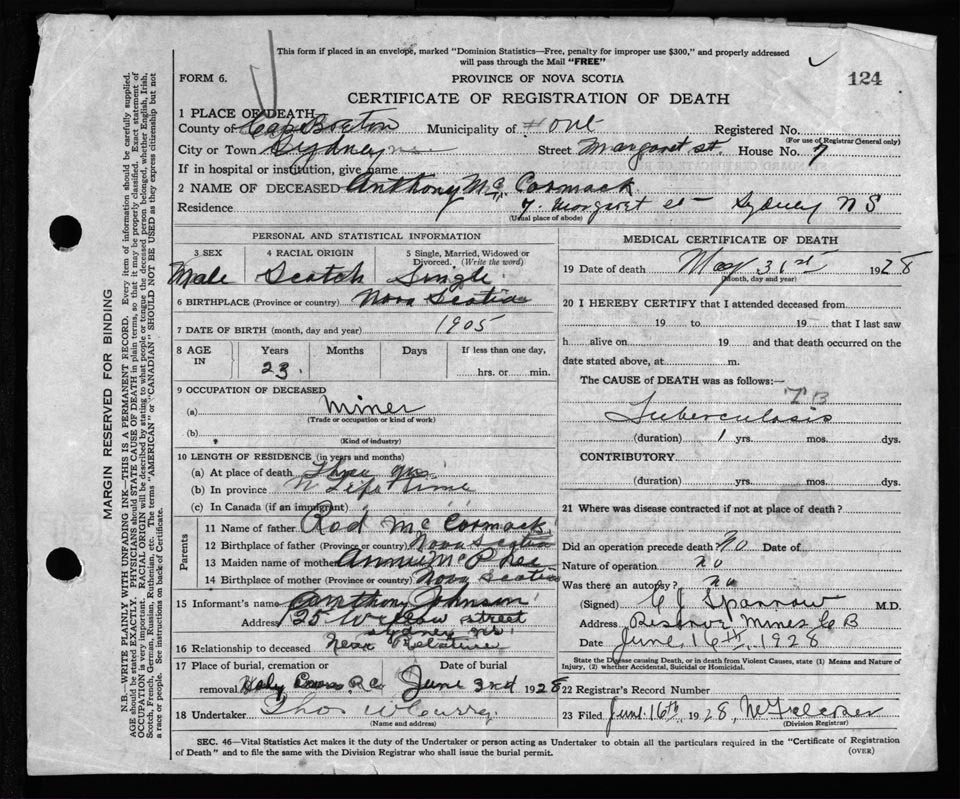 This form if placed in an envelope, marked "Dominion Statistics—Free, penalty for improper use $300," and properly addressed
will pass through the Mail "FREE"
FORM 6.
PROVINCE OF NOVA SCOTIA
124
CERTIFICATE OF REGISTRATION OF DEATH
1 PLACE OF DEATH
County of Cape Breton Municipality of # one Registered No.
(For use of Registrar General only)
City or Town Sydney N.S. Street Margaret St. House No. 7
If in hospital or institution, give name
2 NAME OF DECEASED Anthony Mc Cormack
Residence 7. Margaret st Sydney N S
(Usual place of abode)
PERSONAL AND STATISTICAL INFORMATION
3 SEX 4 RACIAL ORIGIN 5 Single, Married, Widowed or
Divorced. (Write the word)
Male Scotch Single
6 BIRTHPLACE (Province or country) Nova Scotia
7 DATE OF BIRTH (month, day and year) 1905
8 AGE IN Years Months Days If less than one day,
23. hrs. or min.
9 OCCUPATION OF DECEASED
(a) Miner
(Trade or occupation or kind of work)
(b)
(Kind of industry)
10 LENGTH OF RESIDENCE (in years and months)
(a) At place of death Three yrs.
(b) In province Life time
(c) In Canada (if an immigrant)
Parents
11 Name of father Rod Mc Cormack
12 Birthplace of father (Province or country) Nova Scotia
13 Maiden name of mother Annie McPhee
14 Birthplace of mother (Province or country) Nova Scotia
15 Informant's name Anthony Johnson
Address 125 Willow Street
Sydney NS
16 Relationship to deceased Near Relative
17 Place of burial, cremation or Date of burial
removal Holy Cross R.C. June 3rd 1928
18 Undertaker Thos W Curry
(Name and address)
MEDICAL CERTIFICATE OF DEATH
19 Date of death May 31st 1928
(Month, day and year)
20 I HEREBY CERTIFY that I attended deceased from
19 to 19 that I last saw
h alive on 19 and that death occurred on the
date stated above, at m.
The CAUSE of DEATH was as follows:—
TB
Tuberculosis
(duration) 1 yrs. mos. dys.
CONTRIBUTORY
(duration) yrs. mos. dys.
21 Where was disease contracted if not at place of death?
Did an operation precede death No Date of
Nature of operation no
Was there an autopsy? no
(Signed) C J Sparrow M.D.
Address Reserve Mines C B
Date June, 16th, 1928
State the Disease causing Death, or in death from Violent Causes, state (1) Means and Nature of
Injury, (2) whether Accidental, Suicidal or Homicidal.
22 Registrar's Record Number
23 Filed June 16th, 1928,
(Division Registrar)
SEC. 46—Vital Statistics Act makes it the duty of the Undertaker or person acting as Undertaker to obtain all the particulars required in the "Certificate of Registration
of Death" and to file the same with the Division Registrar who shall issue the burial permit.
(OVER)
MARGIN RESERVED FOR BINDING
N.B.—WRITE PLAINLY WITH UNFADING INK—THIS IS A PERMANENT RECORD. Every item of information should be carefully supplied.
AGE should be stated EXACTLY. PHYSICIANS should STATE CAUSE OF DEATH in plain terms, so that it may be properly classified. Exact statement of
OCCUPATION is very important. RACIAL ORIGIN will be described by stating to what people or tongue the deceased person belonged, whether English, Irish,
Scotch, French, German, Russian, Ruthenian, etc. The terms "AMERICAN" or "CANADIAN" SHOULD NOT BE USED as they express citizenship but not
a race or people. See instructions on back of Certificate.